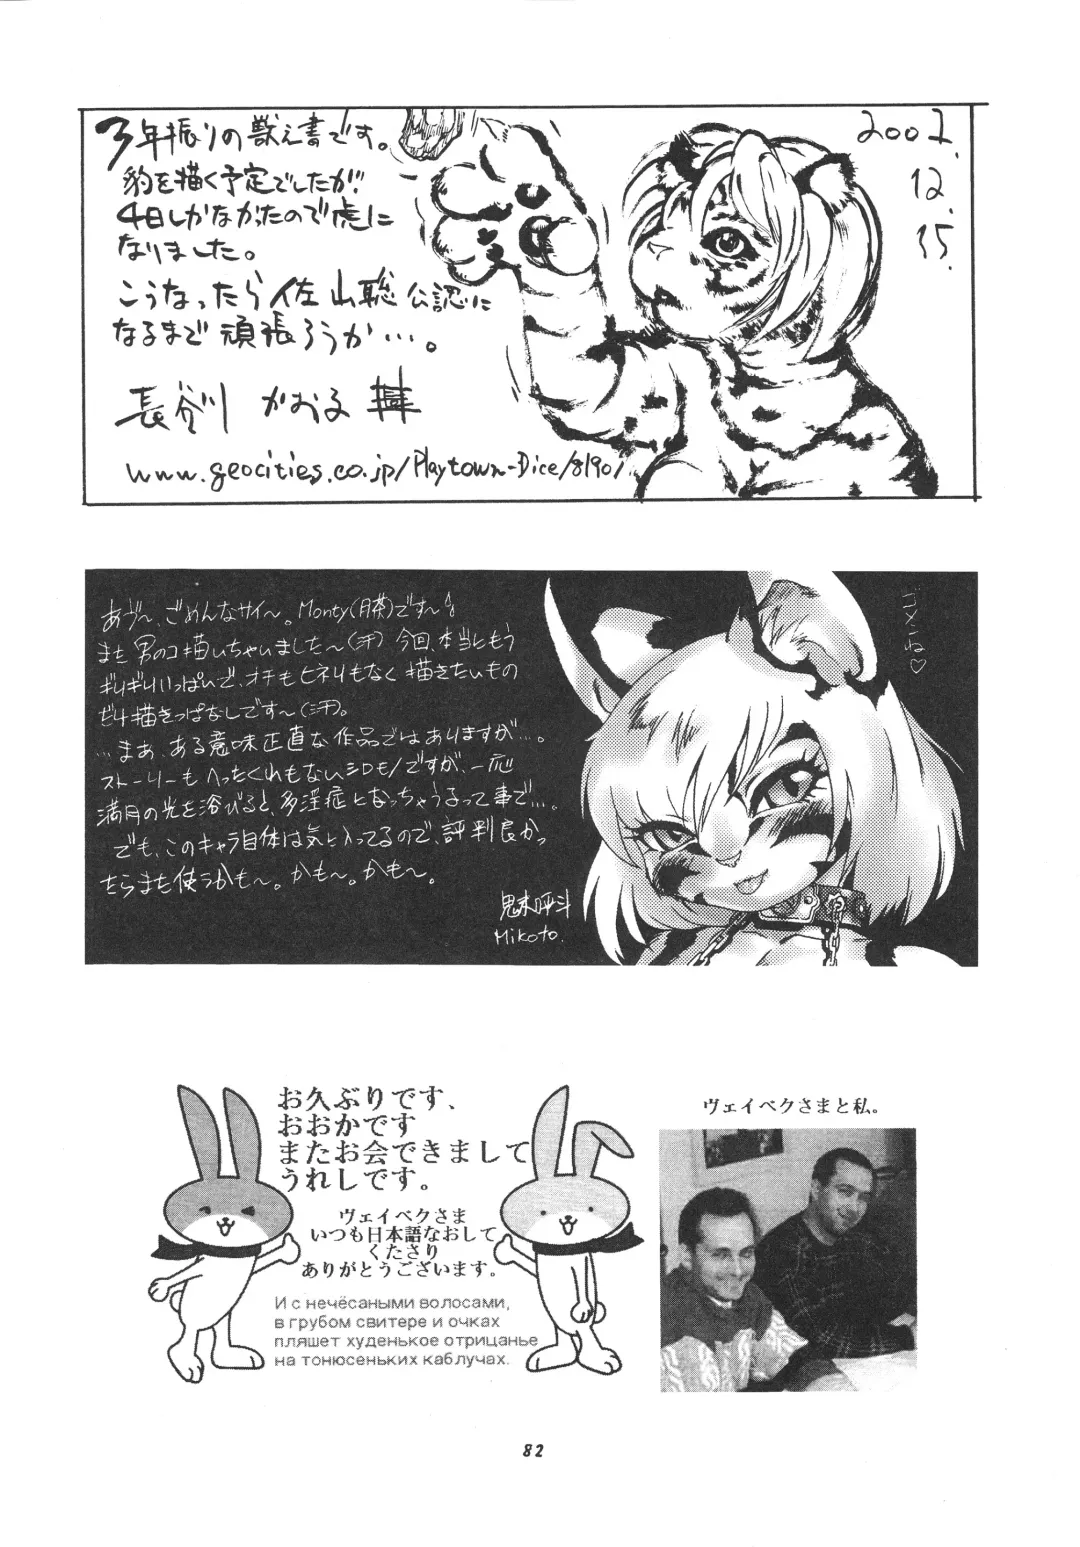 3年振りの獣え書です。
豹を描く予定でしたが!
4日しかなかたので虎に
なりました。
こうなったら佐山聡公認に
なるまで頑張ろうか…。
長谷川 かおる
www.geocities.co.jp/Playtown-Dice/8190/
2002.
12.
15.
あヴ〜、ごめんなサイ〜。Monty(月茶)です〜
また男のコ描いちゃいました〜(汗) 今回、本当ともう
ギリギリいっぱいで、オチもヒネリもなく描きたいもの
だけ描きっぱなしです〜(汗)。
…まあ、ある意味正直な作品ではありますが…。
ストーリーもへったくれもないシロモノですが、一応
満月の光を浴びると、多淫症となっちゃうって事で…。
でも、このキャラ自体は気と入ってるので、評判良かっ
たらまた使うかも〜。かも〜。かも〜。
Mikoto.
ゴメンね♡
お久ぶりです、
おおかです
またお会できまして
うれしです。
ヴェイベクさま
いつも日本語なおして
くたさり
ありがとうございます。
И с нечёсаными волосами,
в грубом свитере и очках
пляшет худенькое отрицанье
на тонюсеньких каблучах.
ヴェイベクさまと私。
82